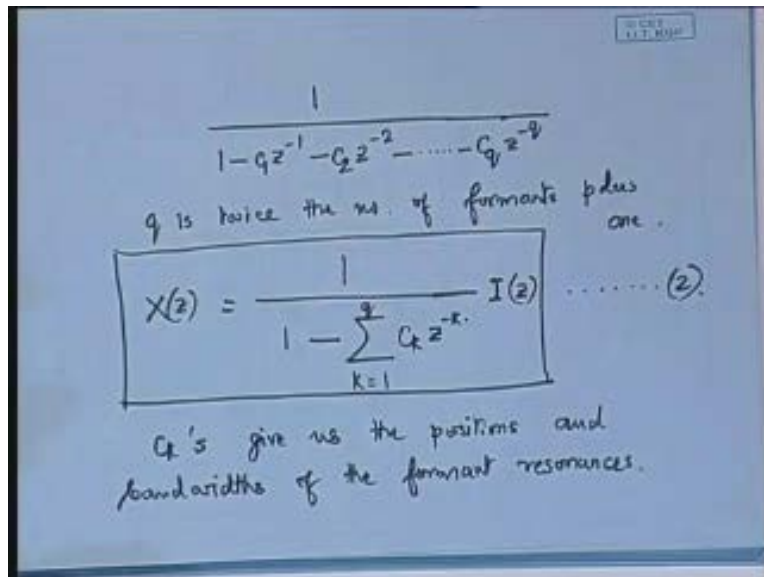 © CET
I.I.T. KGP
1
1 - C₁z⁻¹ - C₂z⁻² - ..... - C_q z^-q
q is twice the no. of formants plus
one.
X(z) = 1 / (1 - Σ_{k=1}^{q} C_k z^-k) I(z) ........ (2).
C_k's give us the positions and
bandwidths of the formant resonances.